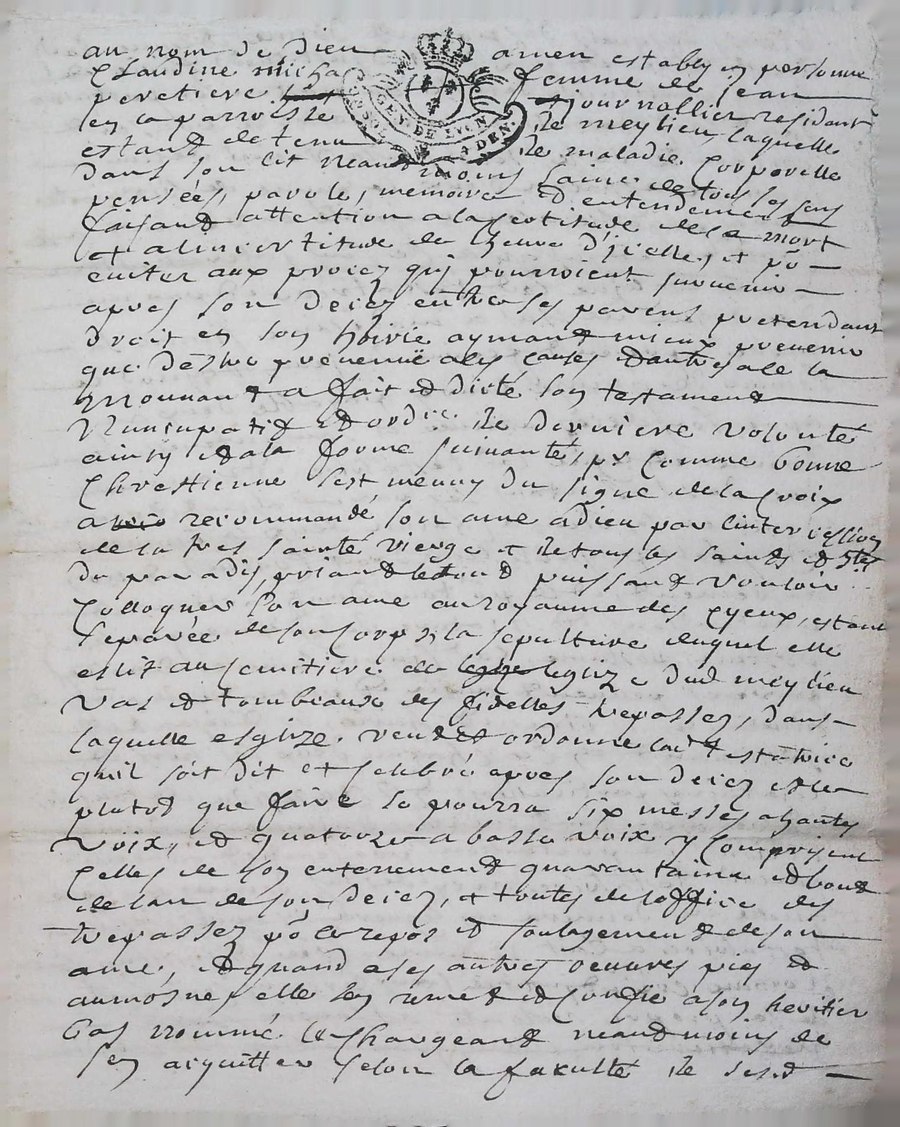 au nom de Dieu amen estably en personne
Claudine micha femme de Jean
peretiere journallier residant
en la parroisse de meylieu laquelle
estant detenu de maladie Corporelle
dans son lit neantmoins saine de tous ses sens
pensées, parole, memoire et entendement
faisand attention a la sertitude de la mort
et a lincertitude de lheure d'icelle, et po
eviter aux procez qui pourroient survenir
apres son decez entre ses parens pretendant
droit en son hoirie aymant mieux prevenir
que destre prevenüe a les causes et autres a le la
mouvant a fait et dicté son testament
Nuncupatif et ordre de derniere volonté
ainsy et a la forme suivante, p comme bonne
Chrestienne sest meuny du signe de la Croix
a recommandé son ame a dieu par lintercession
de la tres sainte vierge et de tous les saints et stes
du paradis, priant le tout puissant vouloir
Colloquer son ame au royaume des Cyeux, estant
separée de son Corps, la sepulture duquel elle
eslit au semitiere de leglize dud meylieu
Vas et tombeaux des fidelles trepassez, dans
laquelle esglize veut et ordonne lad testatrice
quil soit dit et celebré apres son decez et le
plutot que faire se pourra six messes a hautes
voix, et quatorze a basse voix y Comprises
Celles de son enterrement quarantaine et bout
de lan de son decez, et toutes de loffice des
trepassez po le repos et soulagement de son
ame, et quand a ses autres oeuvres pies et
aumosnes elle sen remet et confie a son heritier
bas nommé le Chargeant neantmoins de
sen acquitter selon la faculté de sesd
GEN DE LYON
DEN.